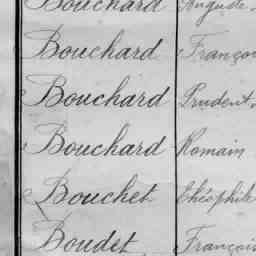 Bouchard Auguste
Bouchard Françoi
Bouchard Prudent
Bouchard Romain
Bouchet Théophile
Boudet François